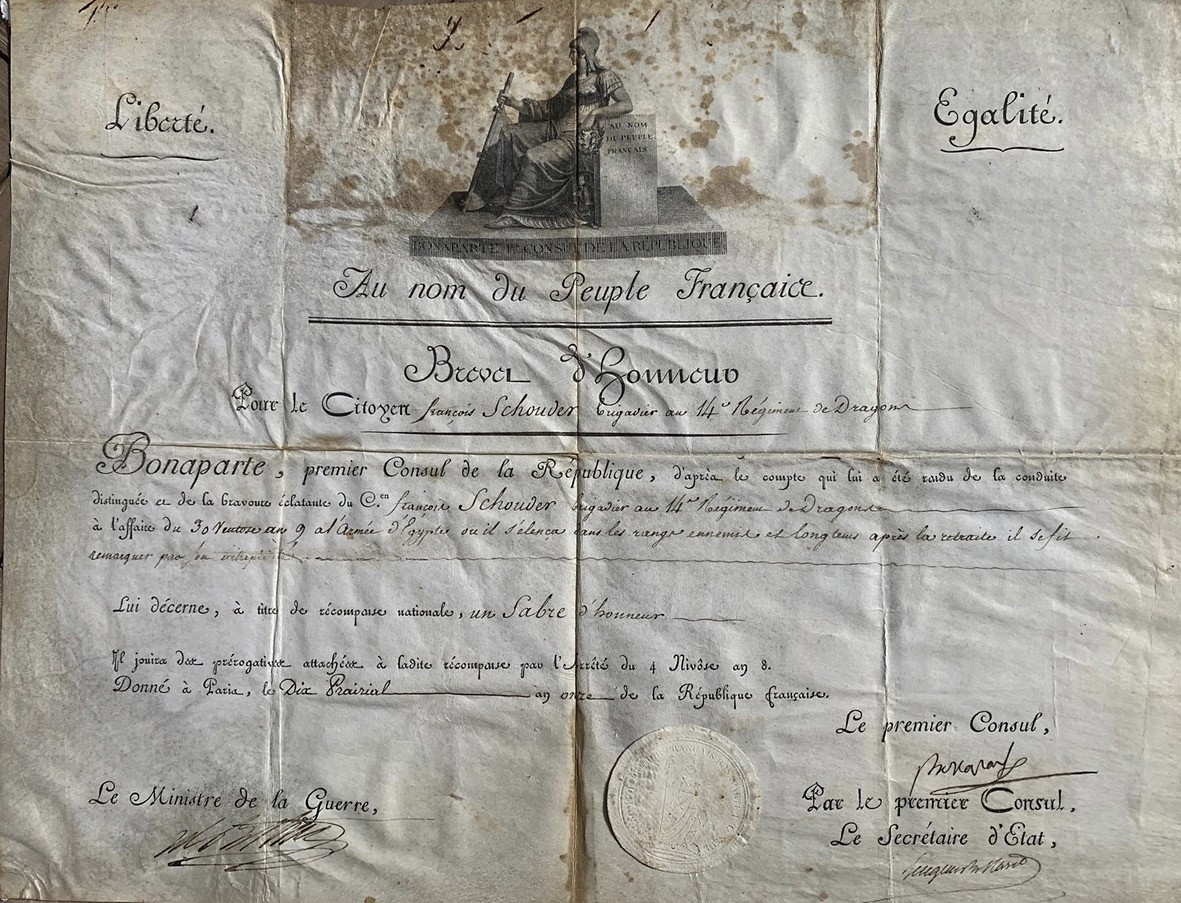 Liberté.
Egalité.
AU NOM
DU PEUPLE
FRANÇAIS
BONAPARTE 1er CONSUL DE LA RÉPUBLIQUE
Au nom du Peuple Français.
Brevet d'Honneur
Pour le Citoyen françois Schouder brigadier au 14e Régiment de Dragons
Bonaparte, premier Consul de la République, d'après le compte qui lui a été rendu de la conduite
distinguée et de la bravoure éclatante du C.en françois Schouder brigadier au 14me Régiment de Dragons
à l'affaire du 30 Ventose an 9 a l'Armée d'Egypte ou il s'elenca dans les rangs ennemis et longtems après la retraite il se fit
remarquer par son intrepidité
Lui décerne, à titre de récompense nationale, un Sabre d'honneur
Il jouira des prérogatives attachées à ladite récompense par l'Arrêté du 4 Nivôse an 8.
Donné à Paris, le Dix Prairial an onze de la République française.
Le premier Consul,
Bonaparte
Le Ministre de la Guerre,
Par le premier Consul,
Le Secrétaire d'Etat,